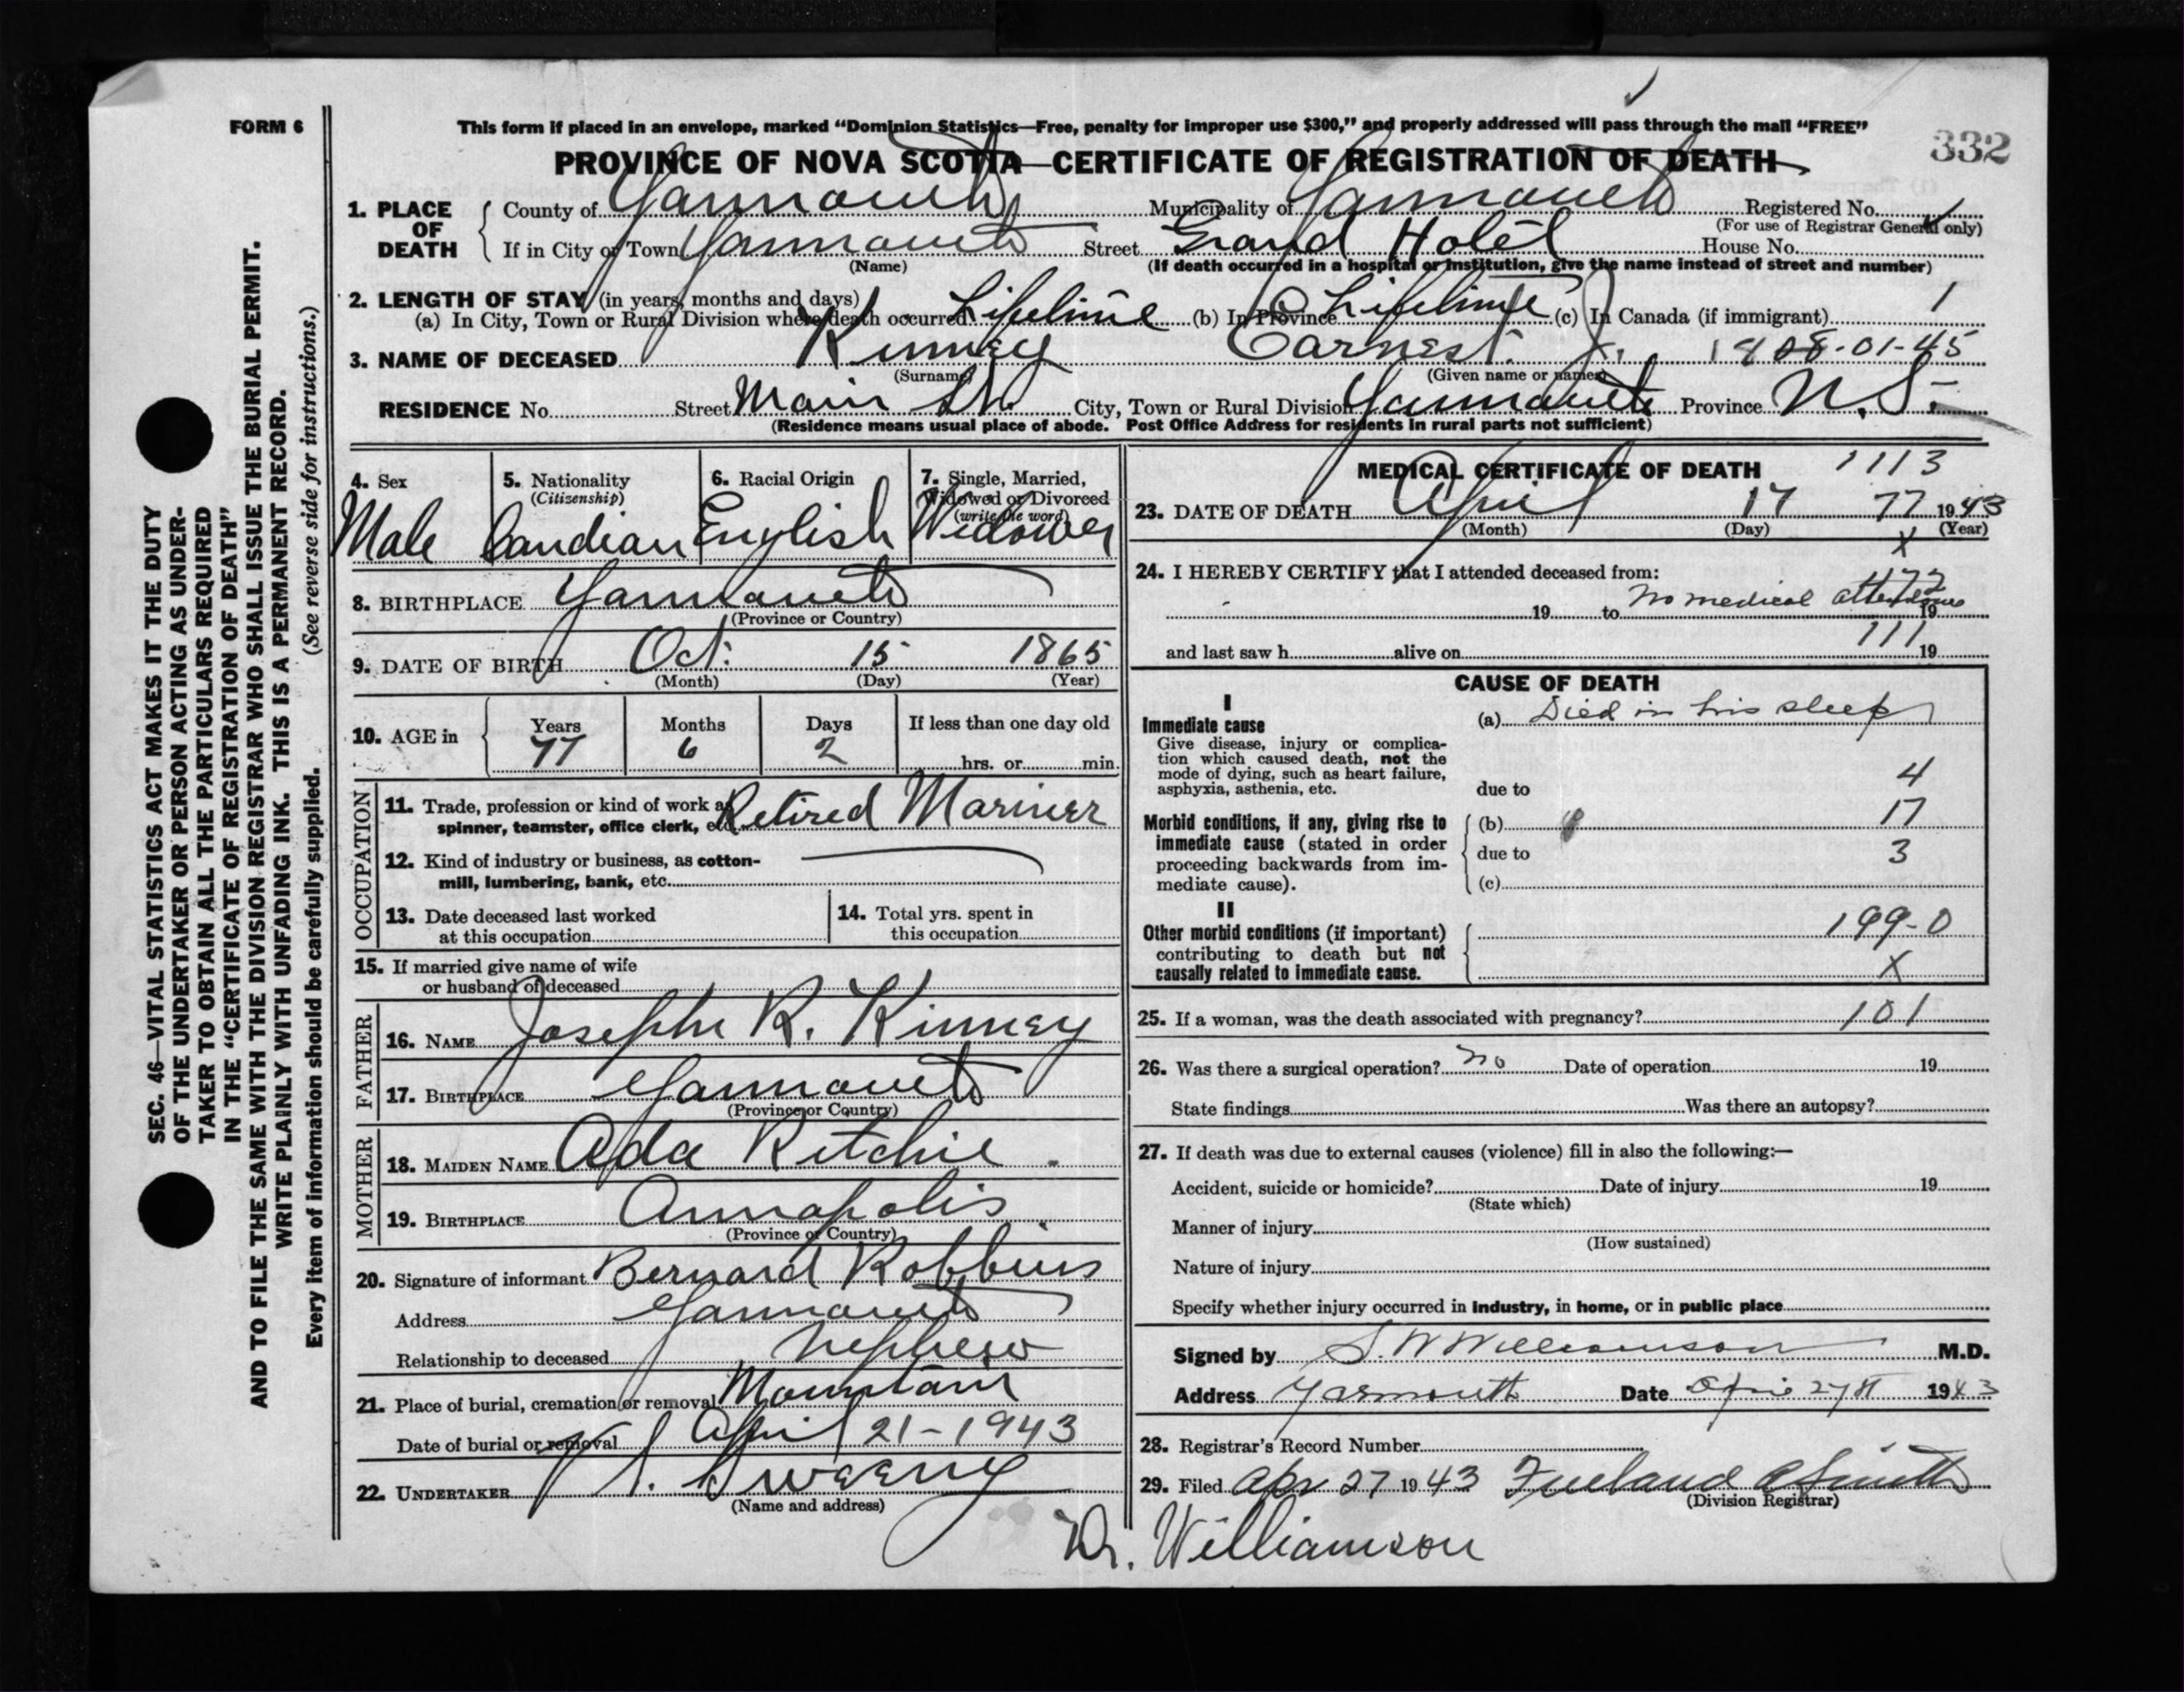 FORM 6
This form if placed in an envelope, marked “Dominion Statistics—Free, penalty for improper use $300,” and properly addressed will pass through the mail “FREE”
PROVINCE OF NOVA SCOTIA—CERTIFICATE OF REGISTRATION OF DEATH
332
1. PLACE OF DEATH
County of Yarmouth Municipality of Yarmouth Registered No.
(For use of Registrar General only)
If in City or Town Yarmouth Street Grand Hotel House No.
(Name) (If death occurred in a hospital or institution, give the name instead of street and number)
2. LENGTH OF STAY (in years, months and days)
(a) In City, Town or Rural Division where death occurred Lifetime (b) In Province Lifetime (c) In Canada (if immigrant) 1
3. NAME OF DECEASED Kinney Earnest 01-45
(Surname) (Given name or names)
RESIDENCE No. Street Main St. City, Town or Rural Division Yarmouth Province N.S.
(Residence means usual place of abode. Post Office Address for residents in rural parts not sufficient)
4. Sex Male
5. Nationality (Citizenship) Candian
6. Racial Origin English
7. Single, Married, Widowed or Divorced (write the word) Widower
8. BIRTHPLACE Yarmouth
(Province or Country)
9. DATE OF BIRTH Oct. 15 1865
(Month) (Day) (Year)
10. AGE in Years 77 Months 6 Days 2 If less than one day old
hrs. or min.
OCCUPATION
11. Trade, profession or kind of work as spinner, teamster, office clerk, etc. Retired Mariner
12. Kind of industry or business, as cotton-
mill, lumbering, bank, etc.
13. Date deceased last worked at this occupation
14. Total yrs. spent in this occupation
15. If married give name of wife
or husband of deceased
FATHER
16. NAME Joseph R. Kinney
17. BIRTHPLACE Yarmouth
(Province or Country)
MOTHER
18. MAIDEN NAME Ada Ritchie.
19. BIRTHPLACE Annapolis
(Province or Country)
20. Signature of informant Bernard Robbins
Address Yarmouth
Relationship to deceased Nephew
21. Place of burial, cremation or removal Mountain
Date of burial or removal April 21-1943
22. UNDERTAKER Sweeny
(Name and address)
MEDICAL CERTIFICATE OF DEATH 1113
23. DATE OF DEATH April 17 77 1943
(Month) (Day) (Year)
X
24. I HEREBY CERTIFY that I attended deceased from:
172
19 to No medical attendance 19
111
and last saw h alive on 19
CAUSE OF DEATH
I
Immediate cause
(a) Died in his sleep
Give disease, injury or complica-
tion which caused death, not the
mode of dying, such as heart failure,
asphyxia, asthenia, etc.
due to
4
Morbid conditions, if any, giving rise to
immediate cause (stated in order
proceeding backwards from im-
mediate cause).
(b) 17
due to 3
(c)
II
Other morbid conditions (if important)
contributing to death but not
causally related to immediate cause.
199-0
X
25. If a woman, was the death associated with pregnancy? 101
26. Was there a surgical operation? No Date of operation 19
State findings Was there an autopsy?
27. If death was due to external causes (violence) fill in also the following:—
Accident, suicide or homicide? Date of injury 19
(State which)
Manner of injury
(How sustained)
Nature of injury
Specify whether injury occurred in industry, in home, or in public place
Signed by S. W Williamson M.D.
Address Yarmouth Date 27 1943
28. Registrar's Record Number
29. Filed Apr 27 1943 Freeland Smith
(Division Registrar)
Dr. Williamson
SEC. 46—VITAL STATISTICS ACT MAKES IT THE DUTY
OF THE UNDERTAKER OR PERSON ACTING AS UNDER-
TAKER TO OBTAIN ALL THE PARTICULARS REQUIRED
IN THE “CERTIFICATE OF REGISTRATION OF DEATH”
AND TO FILE THE SAME WITH THE DIVISION REGISTRAR WHO SHALL ISSUE THE BURIAL PERMIT.
WRITE PLAINLY WITH UNFADING INK. THIS IS A PERMANENT RECORD.
Every item of information should be carefully supplied. (See reverse side for instructions.)